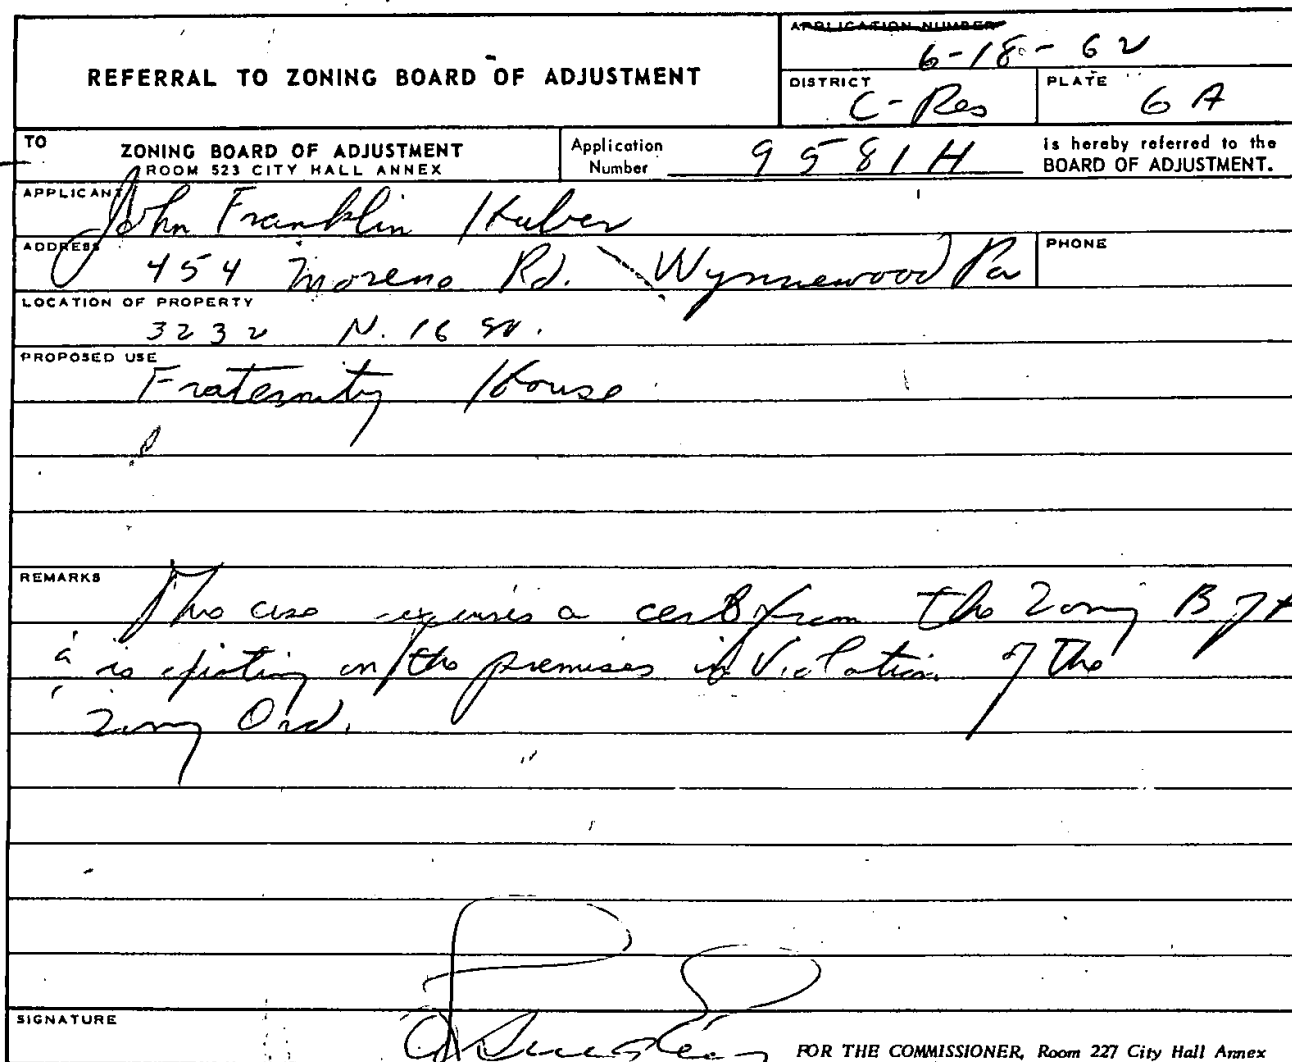 APPLICATION NUMBER
6-18-62
REFERRAL TO ZONING BOARD OF ADJUSTMENT
DISTRICT
C-Res
PLATE
6 A
TO
ZONING BOARD OF ADJUSTMENT
ROOM 523 CITY HALL ANNEX
Application
Number
9581H
is hereby referred to the
BOARD OF ADJUSTMENT.
APPLICANT
John Franklin Huber
ADDRESS
454 Moreno Rd. Wynnewood Pa
PHONE
LOCATION OF PROPERTY
3232 N. 16 St.
PROPOSED USE
Fraternity House
REMARKS
This use requires a cert from the Zoning B of A
is existing on the premises in Violation of the
Zoning Ord.
SIGNATURE
FOR THE COMMISSIONER, Room 227 City Hall Annex